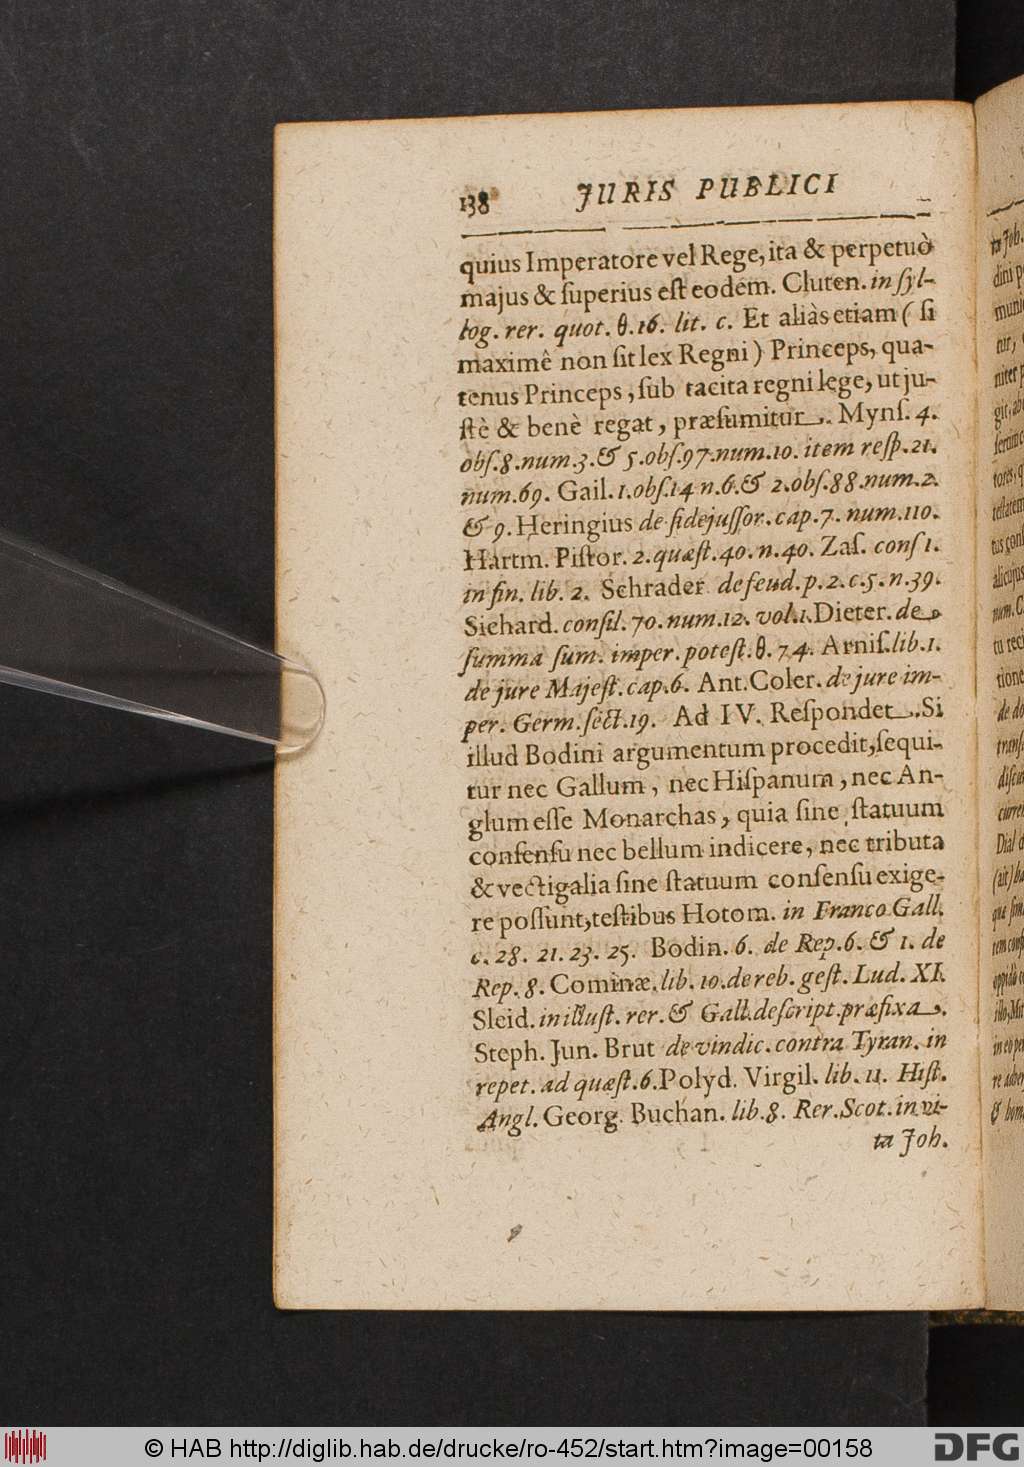 138 JURIS PUBLICI
quius Imperatore vel Rege, ita & perpetuò
majus & ſuperius eſt eodem. Cluten. in ſyl-
log. rer. quot. θ.16. lit. c. Et aliàs etiam ( ſi
maximê non ſit lex Regni ) Princeps, qua-
tenus Princeps, ſub tacita regni lege, ut ju-
ſtè & benè regat, præſumitur. Mynſ. 4.
obſ.8.num.3.& 5.obſ.97.num.10. item reſp.21.
num.69. Gail.1.obſ.14 n.6.& 2.obſ.88.num.2.
& 9. Heringius de fidejuſſor.cap.7. num.110.
Hartm. Piſtor. 2.quæſt.40.n.40. Zaſ. conſ 1.
in fin. lib. 2. Schrader de feud.p.2.c.5.n.39.
Sichard.conſil.70.num.12. vol.1.Dieter. de
ſumma ſum. imper.poteſt.θ.74. Arniſ.lib.1.
de jure Majeſt.cap.6. Ant.Coler. de jure im-
per. Germ.ſect.19. Ad IV. Reſpondet. Si
illud Bodini argumentum procedit,ſequi-
tur nec Gallum, nec Hiſpanum, nec An-
glum eſſe Monarchas, quia ſine ſtatuum
conſenſu nec bellum indicere, nec tributa
& vectigalia ſine ſtatuum conſenſu exige-
re poſſunt,teſtibus Hotom. in Franco Gall.
c. 28. 21. 23. 25. Bodin. 6. de Rep.6. & 1. de
Rep. 8. Cominæ. lib. 10.de reb. geſt. Lud. XI.
Sleid. in illuſt. rer. & Gall.deſcript.præfixa.
Steph. Jun. Brut de vindic. contra Tyran. in
repet. ad quæſt.6.Polyd. Virgil. lib. 11. Hiſt.
Angl. Georg. Buchan. lib.8. Rer.Scot. in vi-
ta Joh.
© HAB http://diglib.hab.de/drucke/ro-452/start.htm?image=00158
DFG